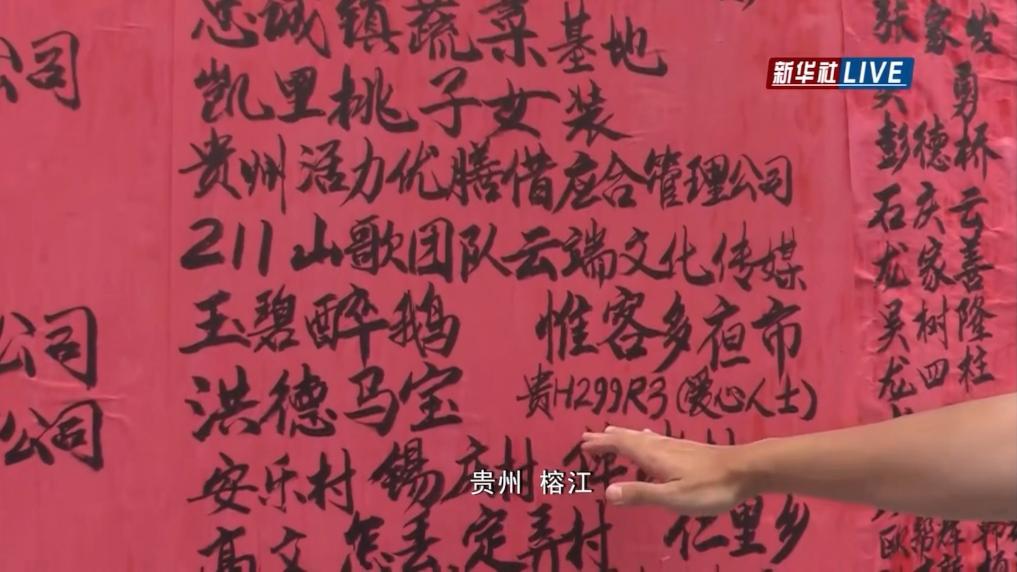 公司
公司
公司
忠诚镇蔬菜基地
凯里桃子女装
贵州活力优膳借应合管理公司
211山歌团队云端文化传媒
玉碧醉鹅 惟客多夜市
洪德马宝 贵H299R3(爱心人士)
安乐村 锡 村
高文 怎 定弄村 仁里乡
新华社LIVE
张家发
勇
彭德桥
石庆云
龙家善
吴树隆
龙四柱
贵州 榕江